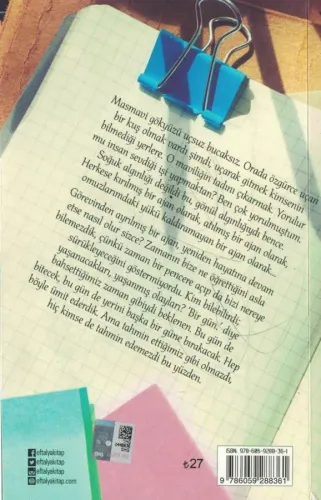 Masmavi gökyüzü uçsuz bucaksız. Orada özgürce uçan
bir kuş olmak vardı şimdi, uçarak gitmek kimsenin
bilmediği yerlere. O maviliğin tadını çıkarmak. Yorulur
mu insan sevdiği işi yapmaktan? Ben çok yorulmuştum.
Soğuk algınlığı değildi bu, gönül algınlığıydı bence.
Herkese kırılmış bir ajan olarak, atılmış bir ajan olarak,
omuzlarımdaki yükü kaldıramayan bir ajan olarak...
Görevinden ayrılmış bir ajan, yeniden hayatına devam
etse nasıl olur sizce? Zamanın bize ne öğrettiğini asla
bilemezdik, çünkü zaman bir pencere açıp da bizi nereye
sürükleyeceğini göstermiyordu. Kim bilebilirdi
yaşanacakları, yaşanmış olayları? 'Bir gün.' diye
bahsettiğimiz zaman gibiydi beklenen. Bu gün de
bitecek, bu gün de yerini başka bir güne bırakacak. Hep
böyle ümit edilirdi. Ama tahmin ettiğimiz gibi olmazdı,
hiç kimse de tahmin edemezdi bu yüzden.
eftalyakitap
eftalyakitap
eftalyakitap
eftalyakitap.com
₺27
ISBN: 978-605-9288-36-1
9 786059 288361